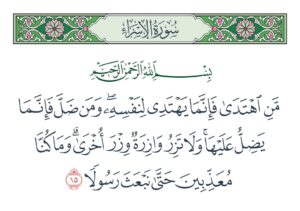 سُورَةُ الإِسْرَاءِ
بِسْمِ اللَّهِ الرَّحْمَٰنِ الرَّحِيمِ
مَّنِ اهْتَدَىٰ فَإِنَّمَا يَهْتَدِي لِنَفْسِهِ ۖ وَمَن ضَلَّ فَإِنَّمَا
يَضِلُّ عَلَيْهَا ۚ وَلَا تَزِرُ وَازِرَةٌ وِزْرَ أُخْرَىٰ ۗ وَمَا كُنَّا
مُعَذِّبِينَ حَتَّىٰ نَبْعَثَ رَسُولًا ١٥